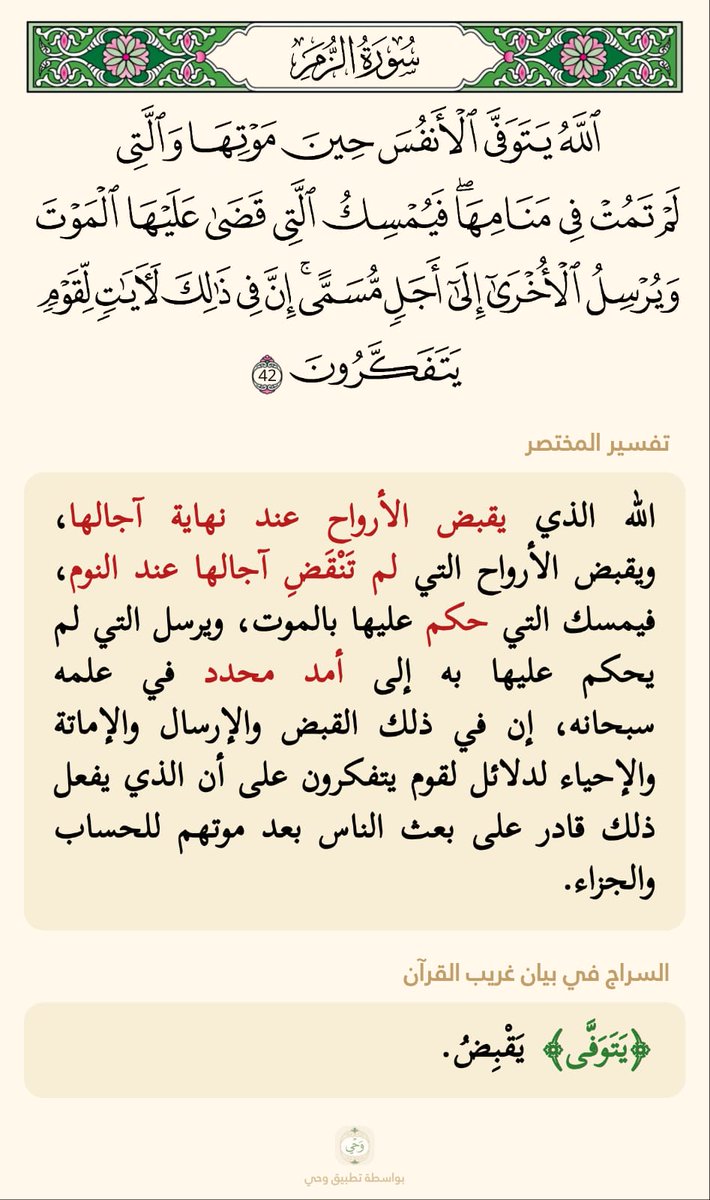 سُورَةُ الزُّمَرِ
ٱللَّهُ يَتَوَفَّى ٱلْأَنفُسَ حِينَ مَوْتِهَا وَٱلَّتِى
لَمْ تَمُتْ فِى مَنَامِهَا ۖ فَيُمْسِكُ ٱلَّتِى قَضَىٰ عَلَيْهَا ٱلْمَوْتَ
وَيُرْسِلُ ٱلْأُخْرَىٰٓ إِلَىٰٓ أَجَلٍ مُّسَمًّى ۚ إِنَّ فِى ذَٰلِكَ لَـَٔايَٰتٍ لِّقَوْمٍ
يَتَفَكَّرُونَ 42
تفسير المختصر
الله الذي يقبض الأرواح عند نهاية آجالها،
ويقبض الأرواح التي لم تَنْقَضِ آجالها عند النوم،
فيمسك التي حكم عليها بالموت، ويرسل التي لم
يحكم عليها به إلى أمد محدد في علمه
سبحانه، إن في ذلك القبض والإرسال والإماتة
والإحياء لدلائل لقوم يتفكرون على أن الذي يفعل
ذلك قادر على بعث الناس بعد موتهم للحساب
والجزاء.
السراج في بيان غريب القرآن
﴿يَتَوَفَّى﴾ يَقْبِضُ.
وَحْي
بواسطة تطبيق وحي